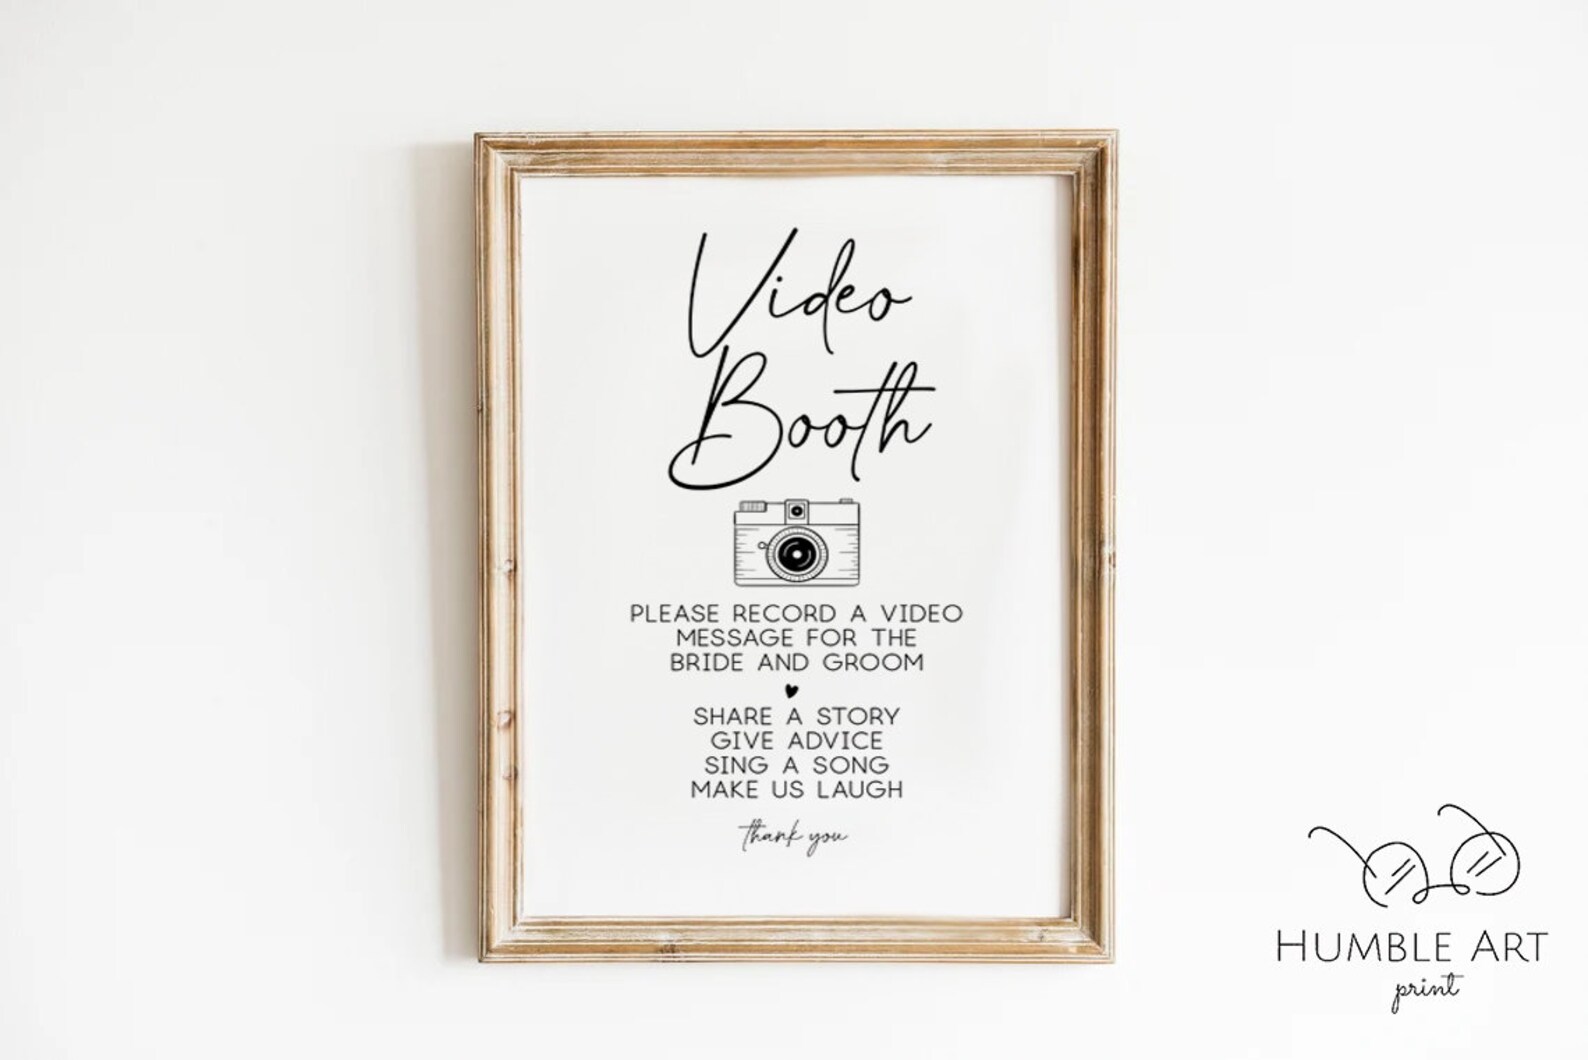 Video
Booth
PLEASE RECORD A VIDEO
MESSAGE FOR THE
BRIDE AND GROOM
SHARE A STORY
GIVE ADVICE
SING A SONG
MAKE US LAUGH
thank you
HUMBLE ART
print